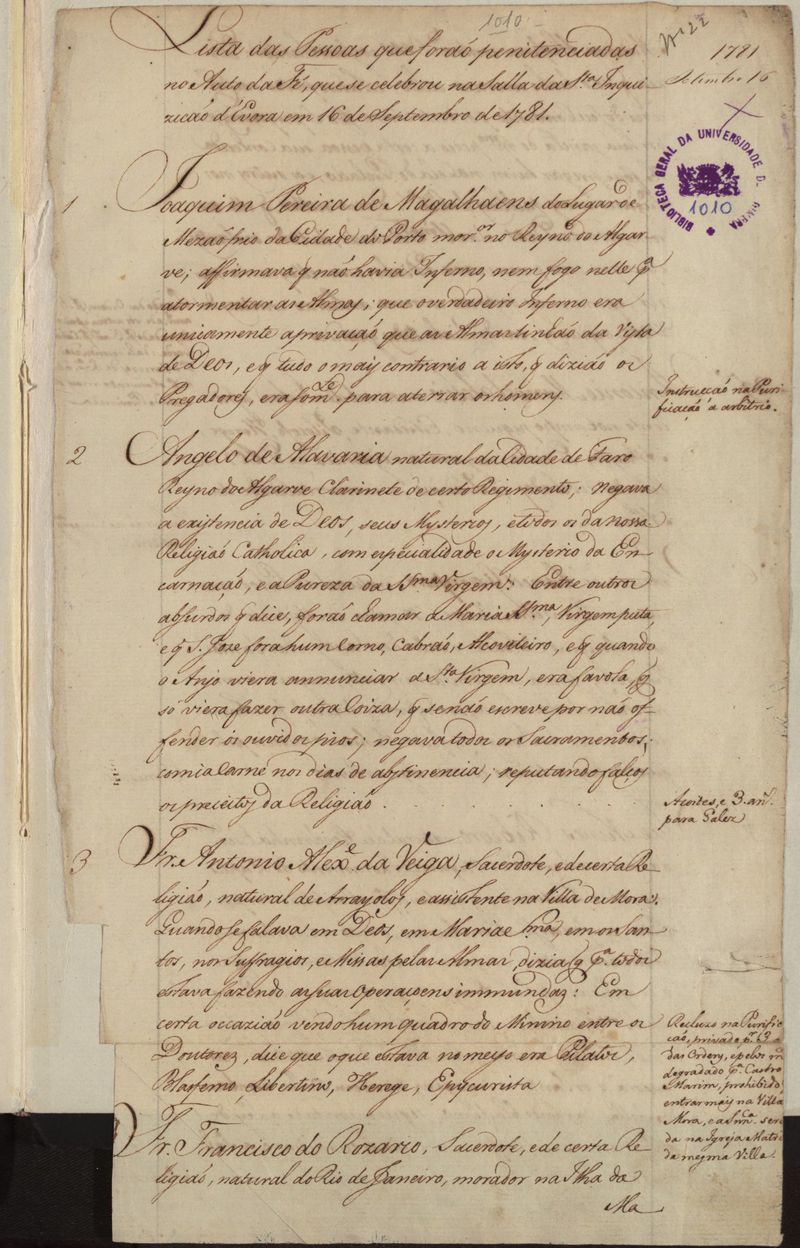 1010
Nº 22
Lista das Pessoas que foraõ penitenciadas
no Auto da Fé, que se celebrou na Salla da Sta. Inqui-
ziçaõ d'Evora em 16 de Septembro de 1781.
1781
Setembro 16
BIBLIOTECA GERAL DA UNIVERSIDADE DE COIMBRA
1010
1 Joaquim Pereira de Magalhaens do Lugar de
Mezaõ frio da Cidade do Porto mor.or no Reyno do Algar-
ve; affirmava q̃ naõ havia Inferno, nem fogo nelle pª
atormentar as Almas; que o verdadeiro Inferno era
unicamente a privaçaõ que as Almas tinhaõ da Vista
de Deos, e q̃ tudo o mais contrario a isto, q̃ diziaõ os
Pregadores, era som.te para aterrar os homens.
Instrucçaõ na Puri-
ficaçaõ a arbitrio.
2 Angelo de Alavaria natural da Cidade de Faro
Reyno do Algarve Clarinete de certo Regimento; Negava
a existencia de Deos, seus Mysterios, e todos os da nossa
Religiaõ Catholica, com especialidade o Mysterio da En-
carnaçaõ, e a Pureza da SSma. Virgem: Entre outros
absurdos q̃ dice, foraõ chamar a Maria SSma, Virgem puta,
e q̃ S. Joze fora hum Corno, Cabraõ, Alcoviteiro, e q̃ quando
o Anjo viera annunciar a Sta. Virgem, era favola, q̃
só viera fazer outra Coiza, q̃ se naõ escreve por naõ of-
fender os ouvidos pios; negava todos os Sacramentos;
comia Carne nos dias de abstinencia; reputando falços
os preceitos da Religiaõ . . . . . . .
Açoites, e 3 an.s
para Galez
3 Fr. Antonio Alexe. da Veiga, Sacerdote, e de certa Re-
ligiaõ, natural de Arrayolos, e assistente na Villa de Mora.
Quando se falava em Deos, em Maria SSma, em os San-
tos, nos Suffragios, e Missas pelas Almas, dizia q̃ pª todos
estava fazendo as suas Operaçoens immundas: Em
certa occaziaõ vendo hum quadro do Minino entre os
Doutores, dice que o que estava no meyo era Pilatos,
Blasfemo, Libertino, Herege, Epycurista
Recluzo na Purific-
caõ, privado pª
das Ordens, e pelos m
degradado pª Castro
Marim, prohibido
entrar mais na Villa
Mora, e a Sm.ça
da na Igreja Matri
da mesma Villa.
Fr. Francisco do Rozario, Sacerdote, e de certa Re-
ligiaõ, natural do Rio de Janeiro, morador na Ilha da
Ma